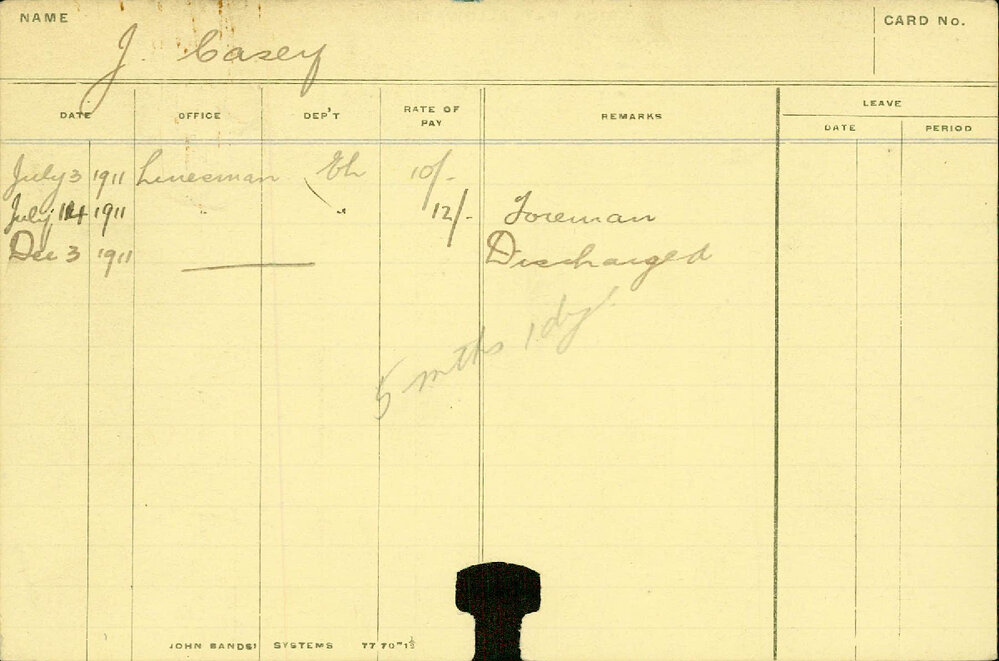 NAME
CARD No.
J. Casey
DATE OFFICE DEP'T RATE OF PAY REMARKS LEAVE
DATE PERIOD
July 3 1911 Linesman Eh 10/-
July 14 1911 " " 12/- Foreman
Dec 3 1911 Discharged
5 mths 1 dy.
JOHN SANDS' SYSTEMS